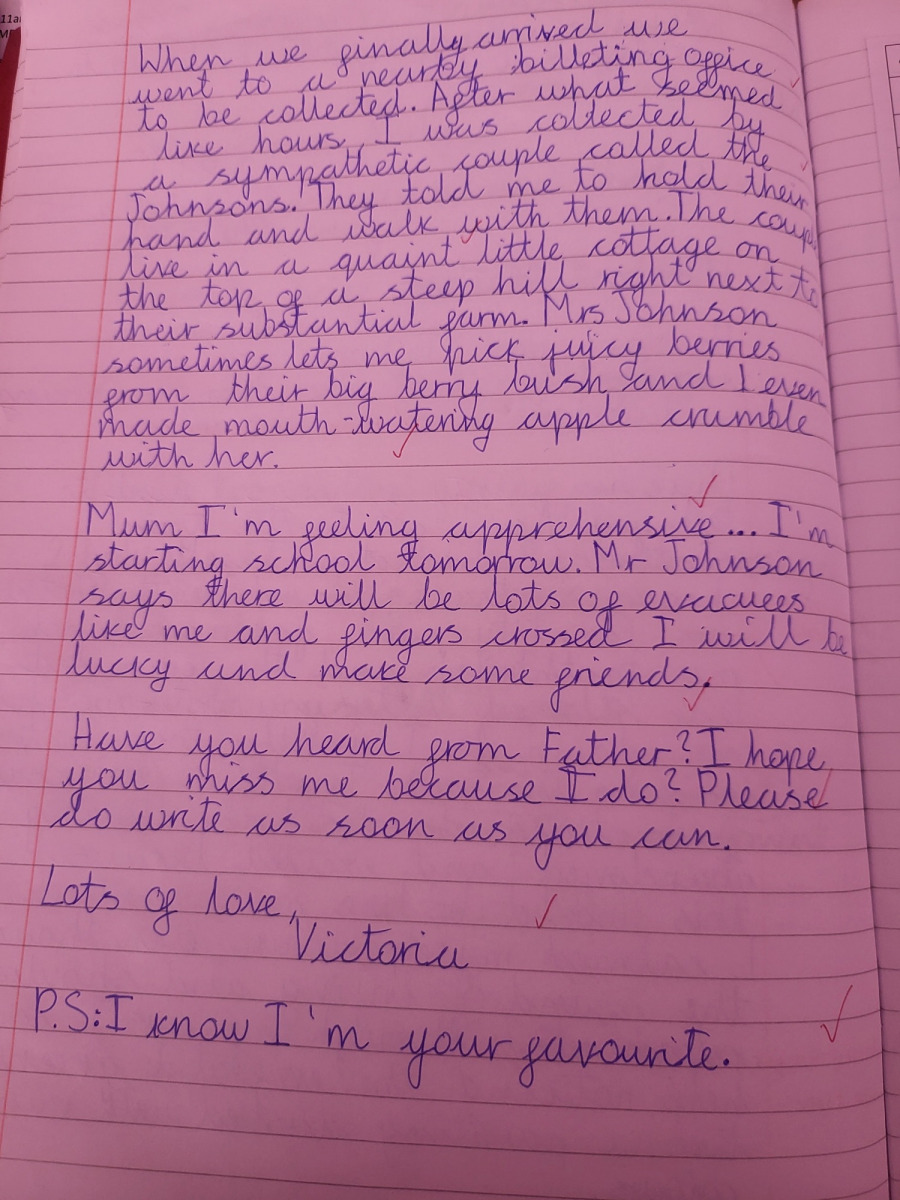 11a
When we finally arrived we
went to a nearby billeting office
to be collected. After what seemed
like hours, I was collected by
a sympathetic couple called the
Johnsons. They told me to hold their
hand and walk with them. The coup
live in a quaint little cottage on
the top of a steep hill right next to
their substantial farm. Mrs Johnson
sometimes lets me pick juicy berries
from their big berry bush and I even
made mouth-watering apple crumble
with her.
Mum I'm feeling apprehensive... I'm
starting school tomorrow. Mr Johnson
says there will be lots of evacuees
like me and fingers crossed I will be
lucky and make some friends.
Have you heard from Father? I hope
you miss me because I do? Please
do write as soon as you can.
Lots of love,
Victoria
P.S: I know I'm your favourite.